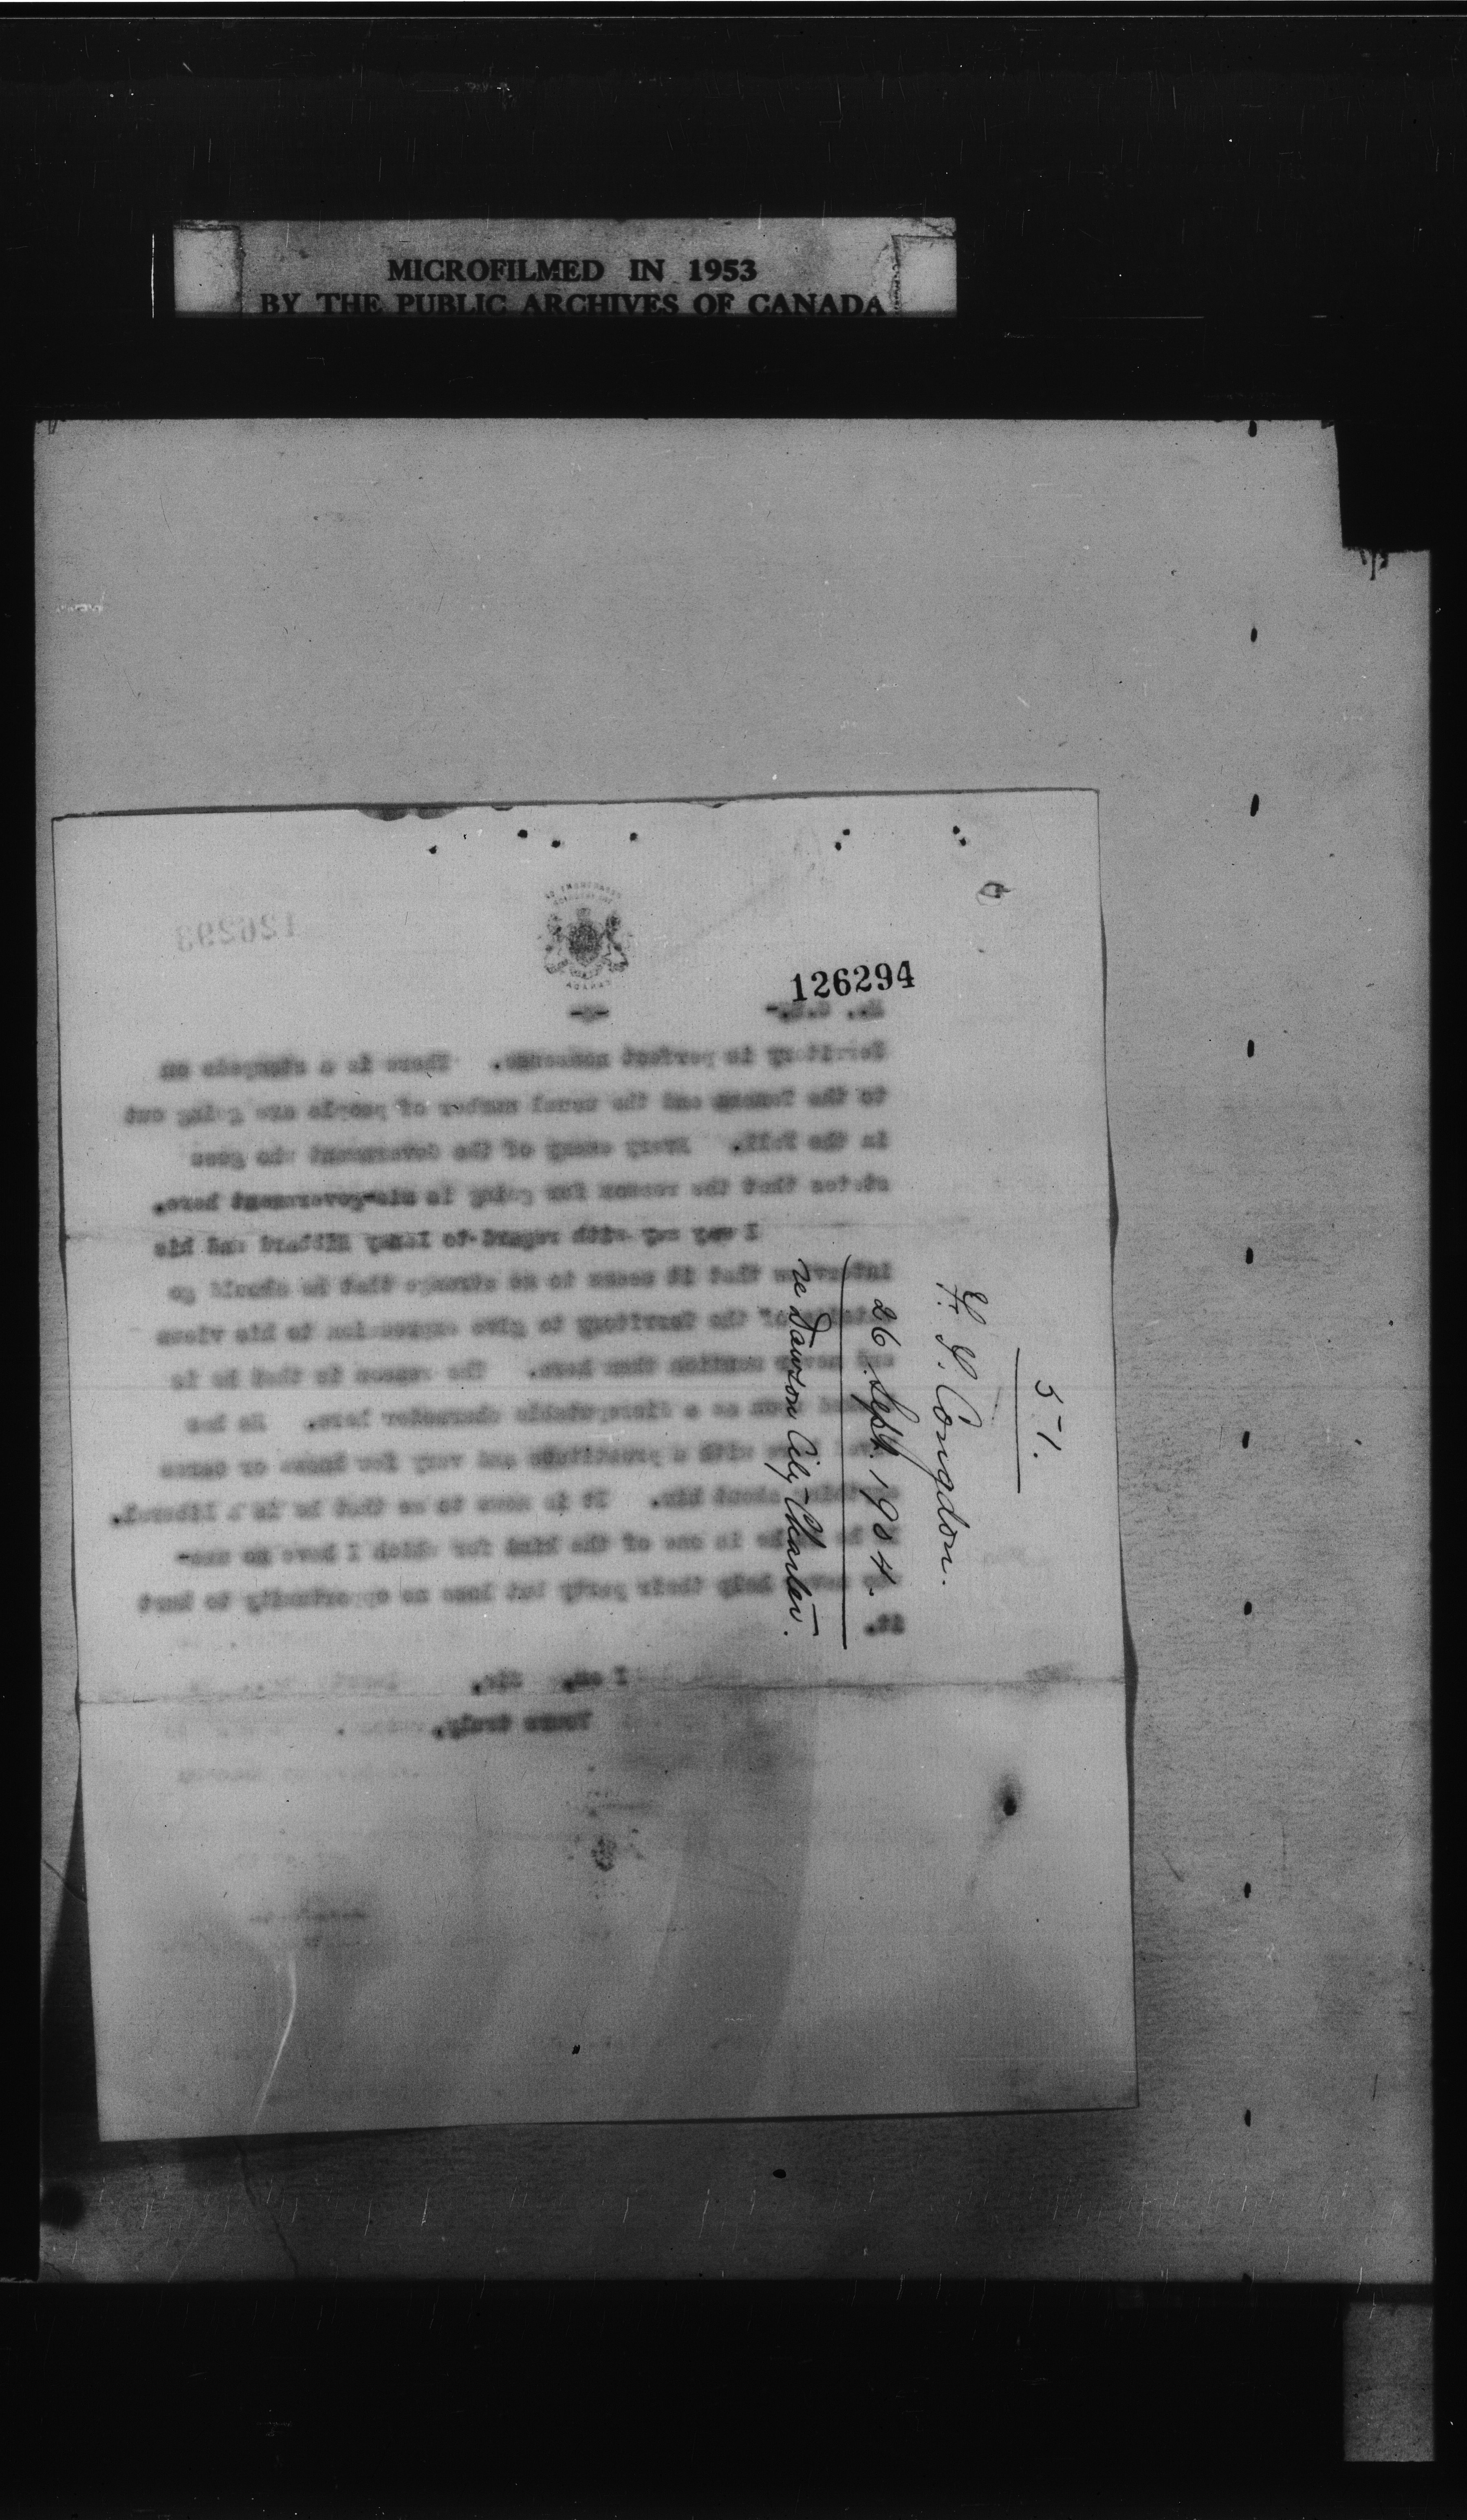 MICROFILMED IN 1953
BY THE PUBLIC ARCHIVES OF CANADA
126293
126294
-2-
Territory is perfect nonsense. There is a stampede on
to the Tanana and the usual number of people are going out
in the Fall. Every enemy of the Government who goes
states that the reason for going is mis-government here.
I may say with regard to Hibbard and his
interview that it seems to me strange that he should go
outside of the Territory to give expression to his views
and never mention them here. The reason is that he is
looked upon as a disreputable character here. He has
lived here with a prostitute and very few know or cares
anything about him. It is news to me that he is a Liberal.
he is one of the kind for which I have no use-
never help their party but lose no opportunity to hurt
it.
I am, Sir,
Yours truly,
51.
F. T. Congdon.
26 Sept. 1904.
re Dawson City Charter.